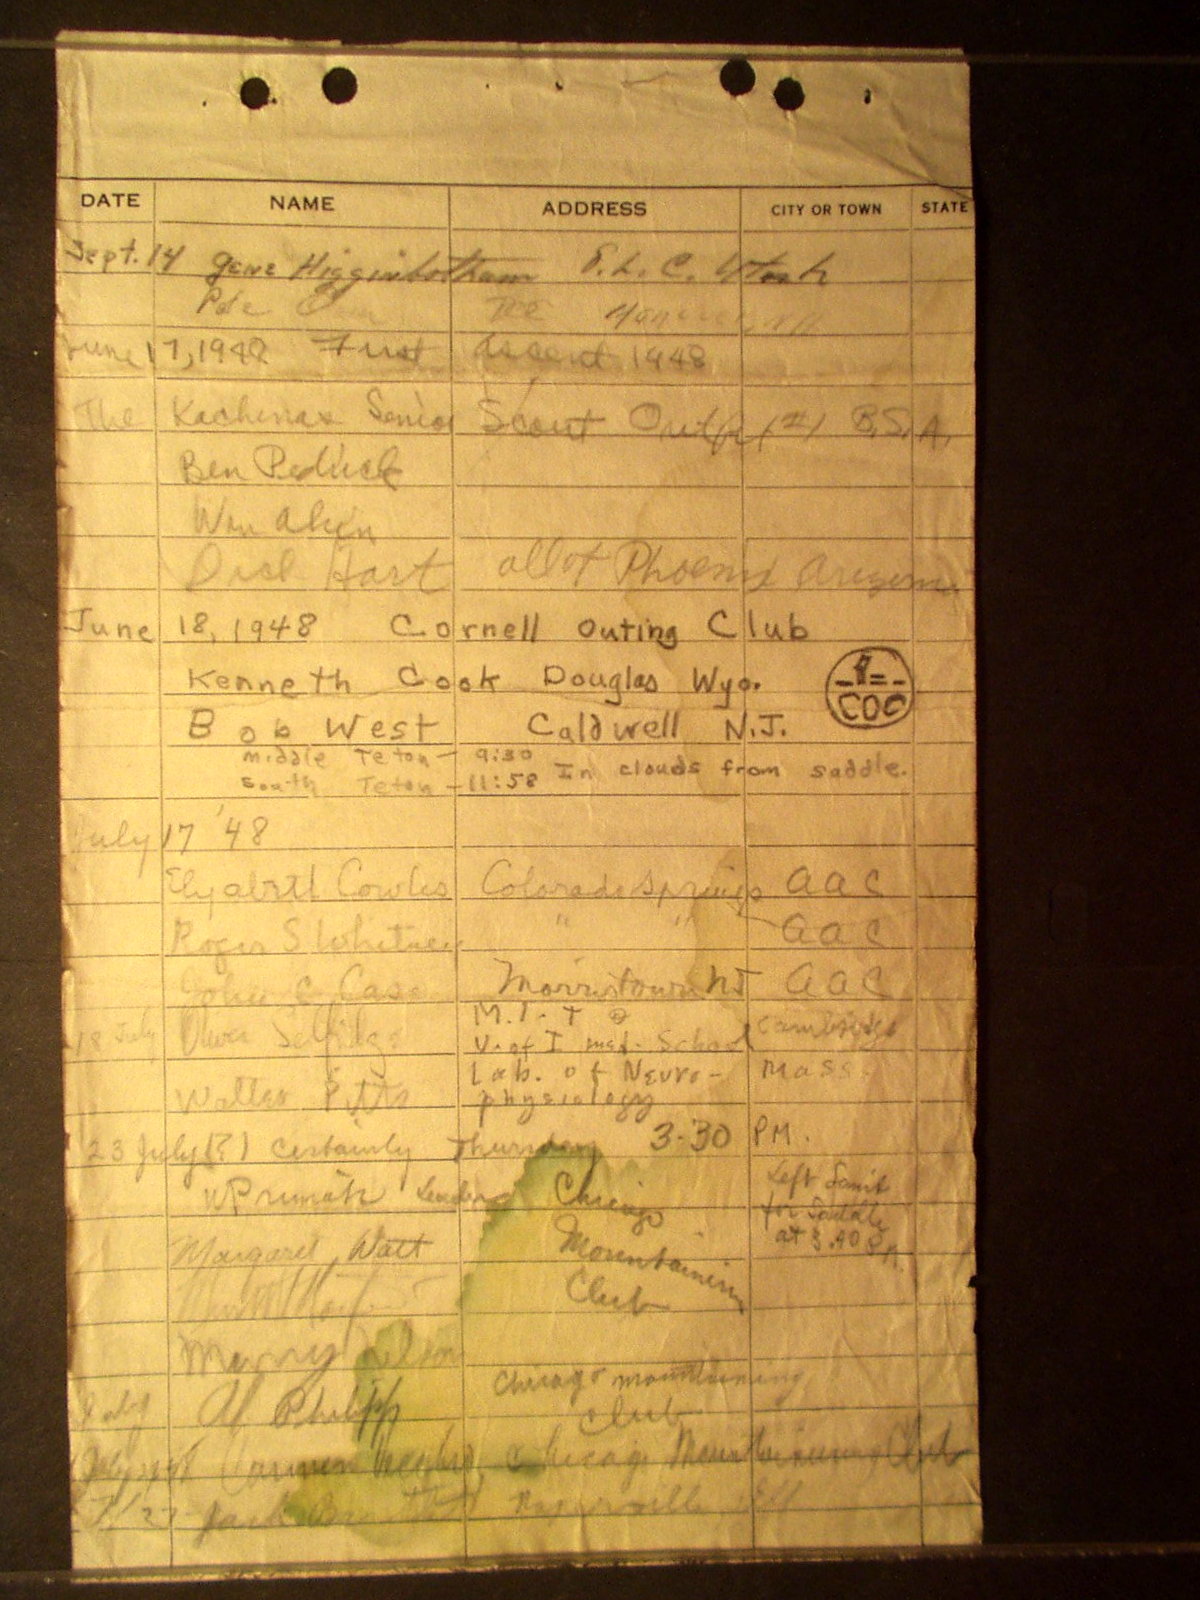 DATE NAME ADDRESS CITY OR TOWN STATE
Sept. 14 Gene Higginbotham S.L.C. Utah
Pete
June 17, 1948 First Ascent 1948
The Kachinas Senior Scout Outfit #1 B.S.A.
Ben Pedrick
Wm Akin
Dick Hart all of Phoenix Arizona
June 18, 1948 Cornell Outing Club
Kenneth Cook Douglas Wyo.
COC
Bob West Caldwell N.J.
Middle Teton - 9:30
South Teton - 11:58 In clouds from saddle.
July 17 '48
Elizabeth Cowles Colorado Springs AAC
Roger S Whitney " " AAC
John C Case Morristown NJ AAC
18 July Oliver Selfridge M.I.T Cambridge
U. of I med. School
Walter Pitts Lab. of Neuro- Mass.
physiology
23 July (?) Certainly Thursday 3-30 PM.
Leader Chicago
Left Sumit
for Saddle
at 3.40 P.M.
Margaret Watt Mountaineering
Club
Merry
July Al Philipp Chicago mountaineering
Club
July Chicago Mountaineering Club
7/27 Jack Naperville Ill